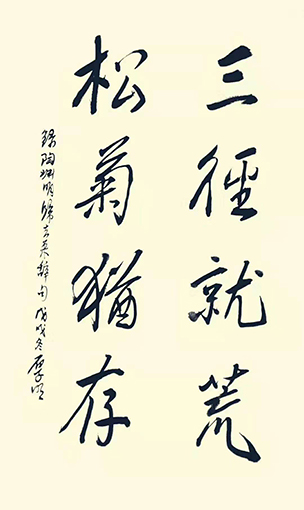 三徑就荒
松菊猶存
錄陶渊明歸去来辞句戊戌冬